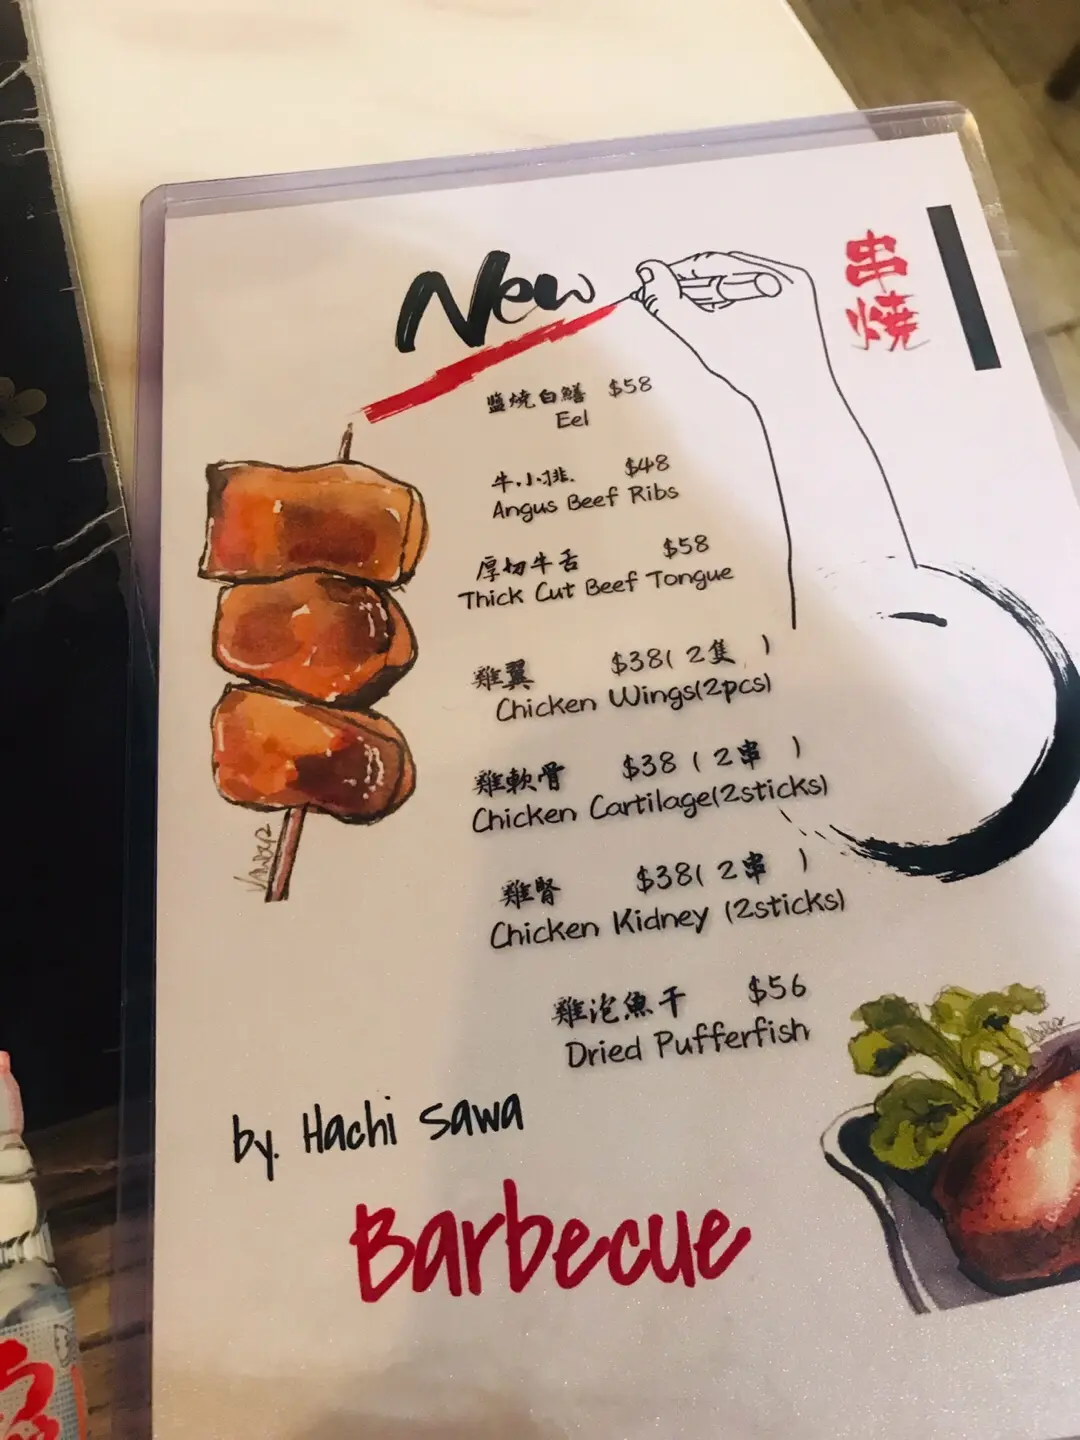 New
串燒
鹽燒白鱔 $58
Eel
牛小排 $48
Angus Beef Ribs
厚切牛舌 $58
Thick Cut Beef Tongue
雞翼 $38(2隻)
Chicken Wings(2pcs)
雞軟骨 $38(2串)
Chicken Cartilage(2sticks)
雞腎 $38(2串)
Chicken Kidney (2sticks)
雞泡魚干 $56
Dried Pufferfish
by. Hachi Sawa
Barbecue